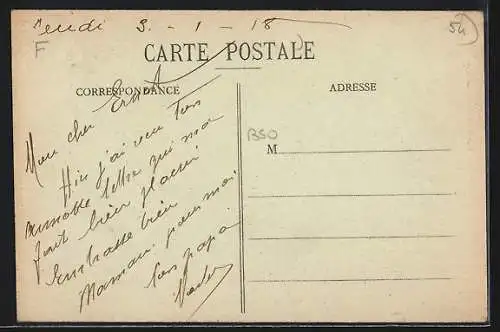 Jeudi 3 - 1 - 18
54
F
CARTE POSTALE
CORRESPONDANCE
ADRESSE
BSO
M
Mon cher Ernest
Hier j'ai reçu ton
aimable lettre qui m'a
fait bien plaisir
Embrasse bien
Maman pour moi
Ton papa